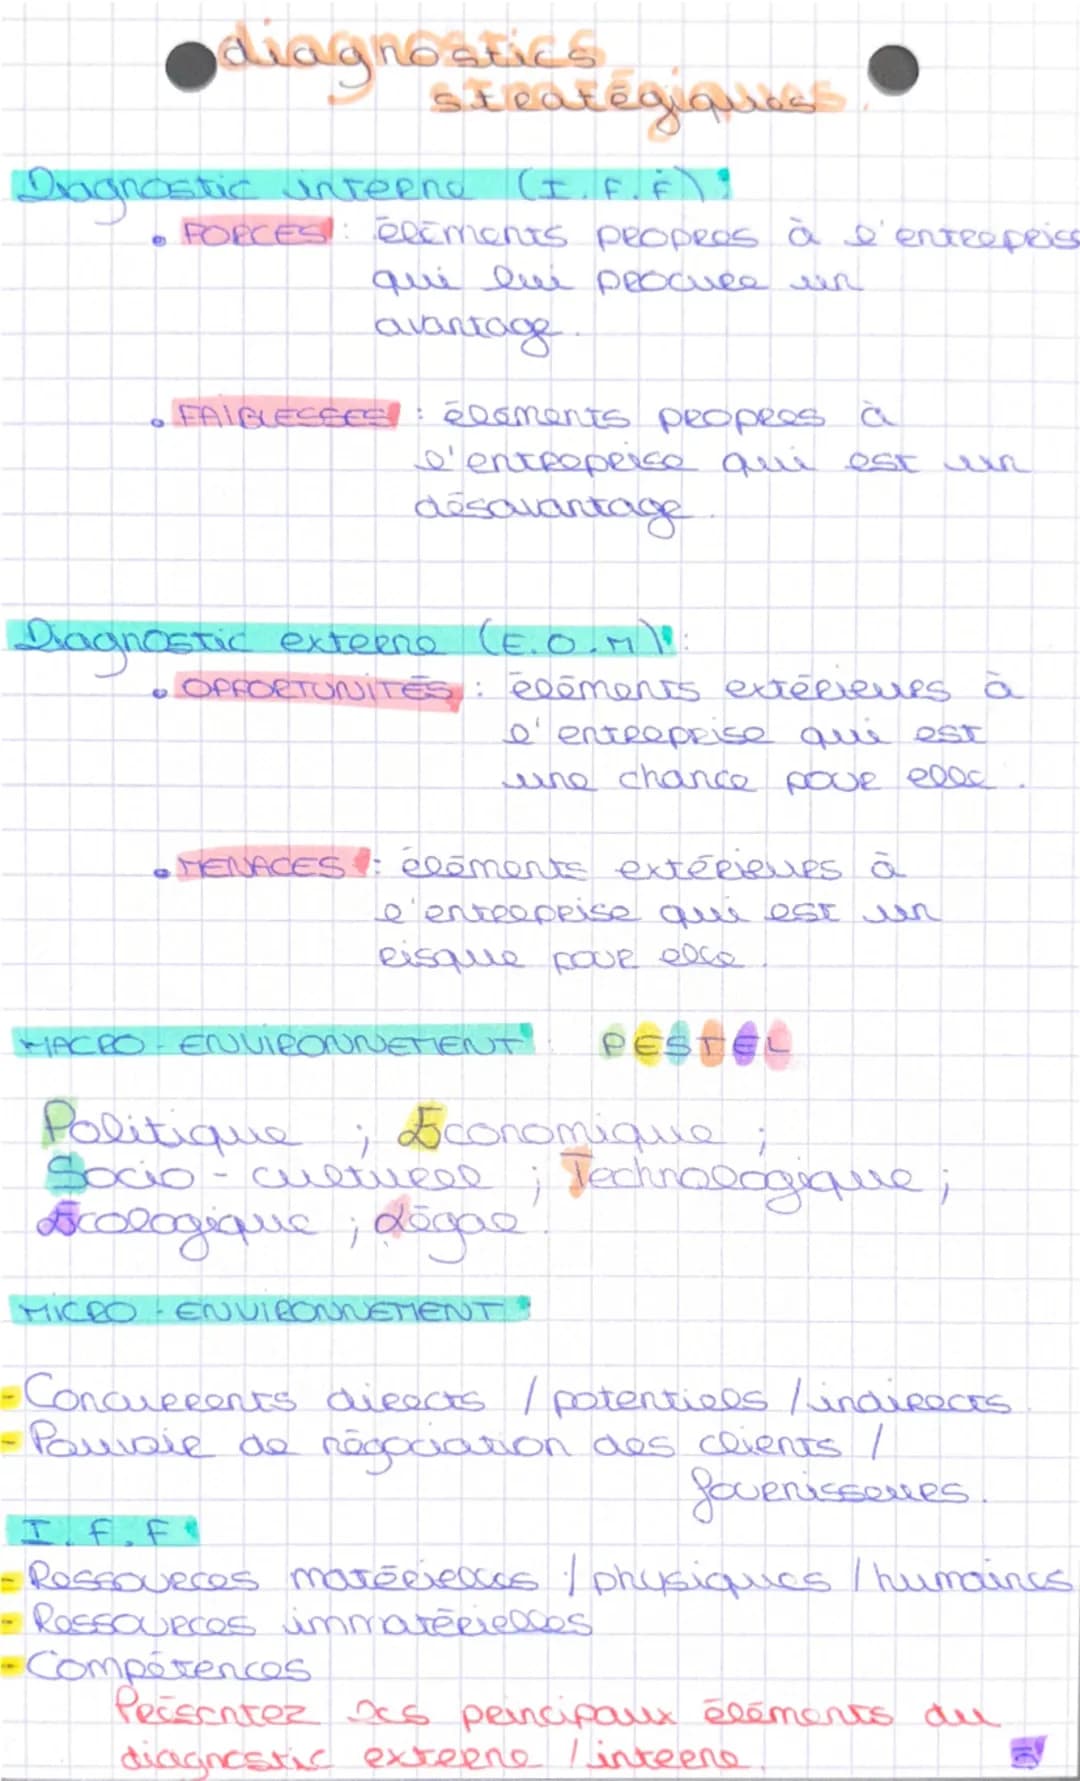 diagnostics
stratégiques.
Diagnostic interne (I.F.F):
• FORCES : éléments propres à l'entrepris
qui lui procure un
avantage.
• FAIBLESSES : éléments propres à
l'entreprise qui est un
désavantage.
Diagnostic externe (E.O.M) :
• OPPORTUNITÉS : éléments extérieurs à
l'entreprise qui est
une chance pour elle.
• MENACES : éléments extérieurs à
l'entreprise qui est un
risque pour elle.
MACRO-ENVIRONNEMENT : PESTEL
Politique ; Économique ;
Socio-culturel ; Technologique ;
Écologique ; Légal.
MICRO-ENVIRONNEMENT
- Concurrents directs / potentiels / indirects.
- Pouvoir de négociation des clients /
fournisseurs.
I.F.F
- Ressources matérielles / physiques / humaines
- Ressources immatérielles
- Compétences
Présentez les principaux éléments du
diagnostic externe / interne.